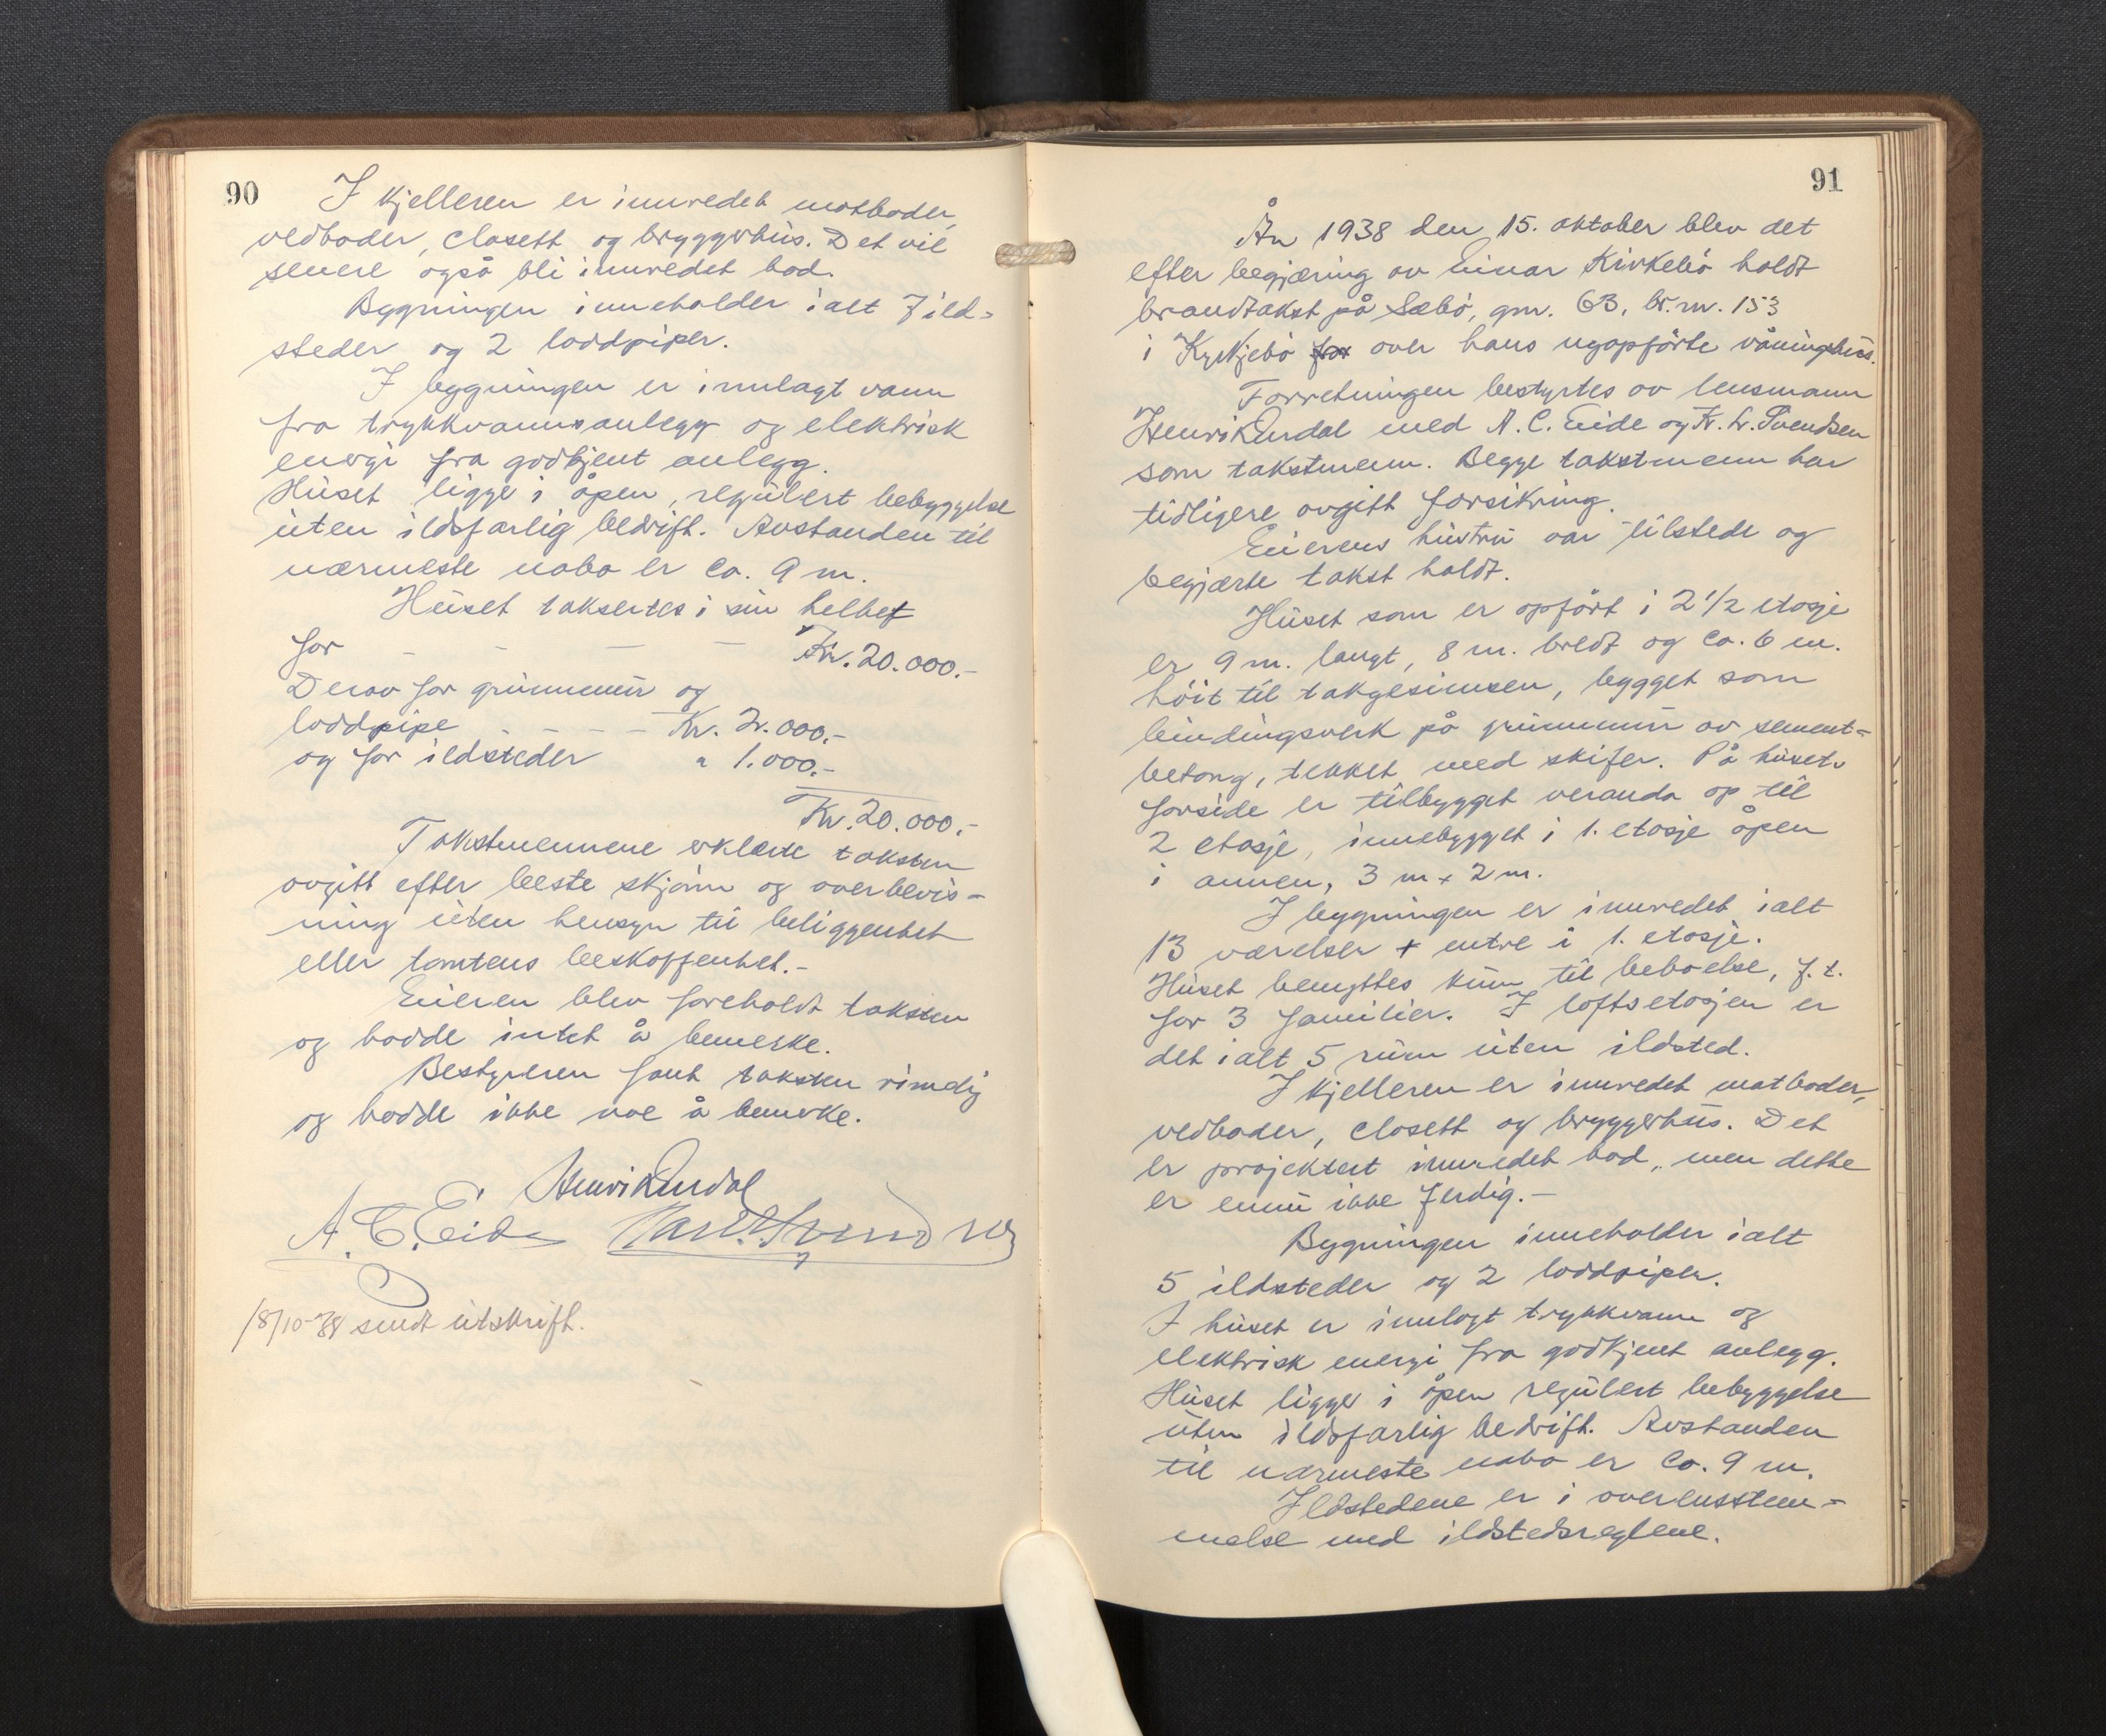 90
I kjelleren er innredet matboder,
vedboder, closett og bryggerhus. Det vil
senere også bli innredet bad.
Bygningen inneholder ialt 7 ild-
steder og 2 loddpiper.
I bygningen er innlagt vann
fra trykkvannsanlegg og elektrisk
energi fra godkjent anlegg.
Huset ligge i åpen, regulert bebyggelse
uten ildsfarlig bedrift. Avstanden til
nærmeste nabo er ca. 9 m.
Huset takseres i sin helhet
for - - - - Kr. 20.000.-
Derav for grunnmur og
loddpipe - - - - Kr. 2.000.-
og for ildsteder " 1.000.-
Kr. 20.000.-
Takstmennene erklærte taksten
avgitt efter beste skjønn og overbevis-
ning uten hensyn til beliggenhet
eller tomtens beskaffenhet.-
Eieren blev foreholdt taksten
og hadde intet å bemerke.
Bestyreren fant taksten rimelig
og hadde ikke noe å bemerke.
Henrik Undal
A. C. Eide Karl L. Svendsen
18/10-38 sendt utskrift.
91
År 1938 den 15. oktober blev det
efter begjæring av Einar Kirkebö holdt
brandtakst på Sæbö, gnr. 63, br.nr. 153
i Kyrkjebö for over hans nyopförte våningshus.
Forretningen bestyrtes av lensmann
Henrik Undal med A. C. Eide og K. L. Svendsen
som takstmenn. Begge takstmenn har
tidligere avgitt forsikring.
Eierens hustru var tilstede og
begjærte takst holdt.
Huset som er opfört i 2 1/2 etasje
er 9 m. langt, 8 m. bredt og ca. 6 m.
höit til takgesimsen, bygget som
bindingsverk på grunnmur av sement-
betong, tekket med skifer. På husets
forside er tilbygget veranda op til
2 etasje, innebygget i 1. etasje åpen
i annen, 3 m x 2 m.
I bygningen er innredet ialt
13 værelser + entre i 1. etasje.
Huset benyttes kun til beboelse, f. t.
for 3 familier. I loftsetasjen er
det ialt 5 rum uten ildsted.
I kjelleren er innredet matboder,
vedboder, closett og bryggerhus. Det
er projektert innredet bad, men dette
er ennu ikke ferdig.-
Bygningen inneholder ialt
5 ildsteder og 2 loddpiper.
I huset er innlagt trykkvann og
elektrisk energi fra godkjent anlegg.
Huset ligger i åpen regulert bebyggelse
uten ildsfarlig bedrift. Avstanden
til nærmeste nabo er ca. 9 m.
Ildstedene er i overensstem-
melse med ildstedsreglene.